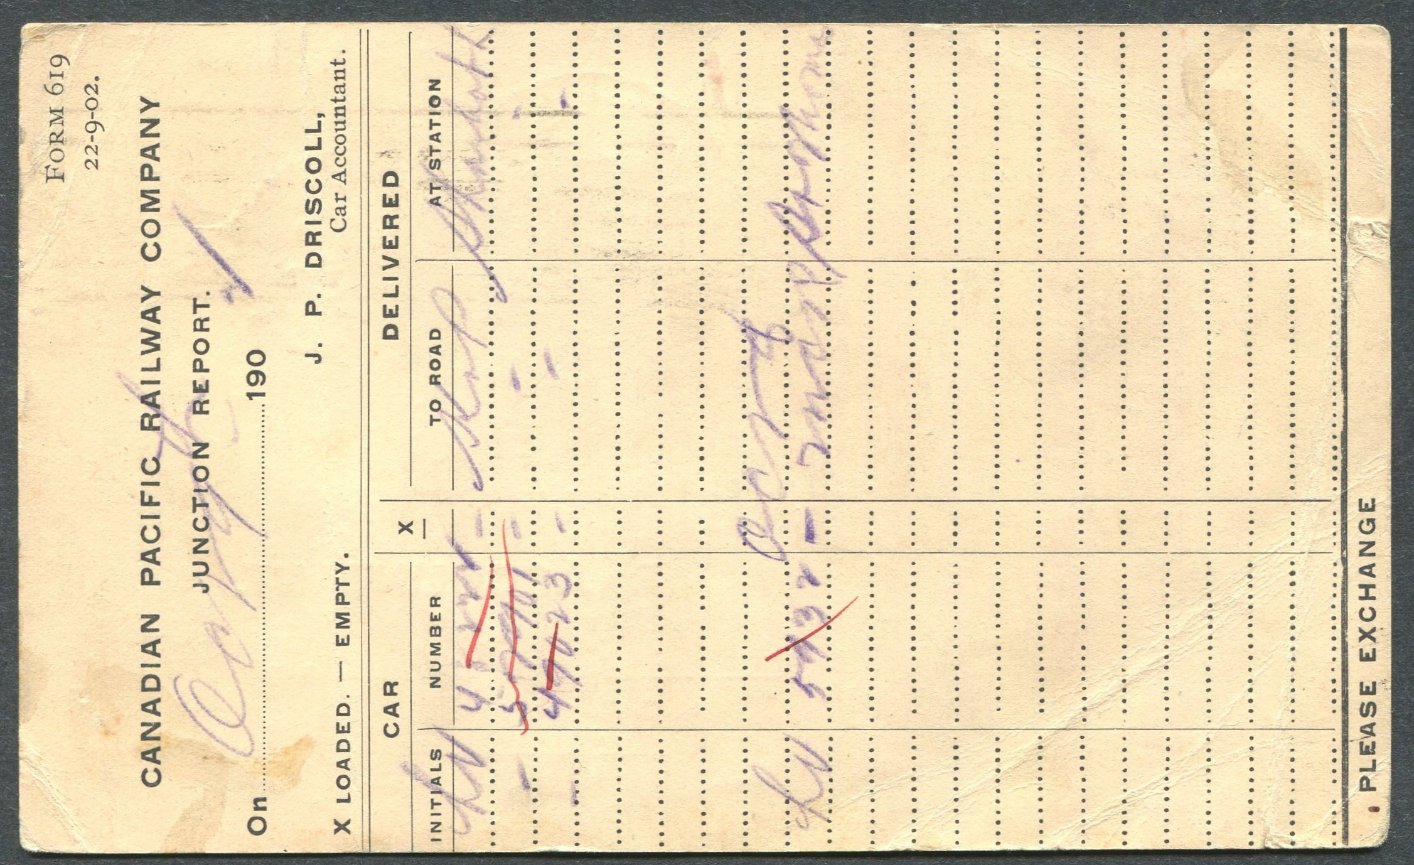 FORM 619
22-9-02.
CANADIAN PACIFIC RAILWAY COMPANY
JUNCTION REPORT.
On 190
J. P. DRISCOLL,
Car Accountant.
X LOADED. — EMPTY.
CAR DELIVERED
INITIALS NUMBER X — TO ROAD AT STATION
LV -
- 49023 - - -
Oct 4
LV 5932 -
PLEASE EXCHANGE